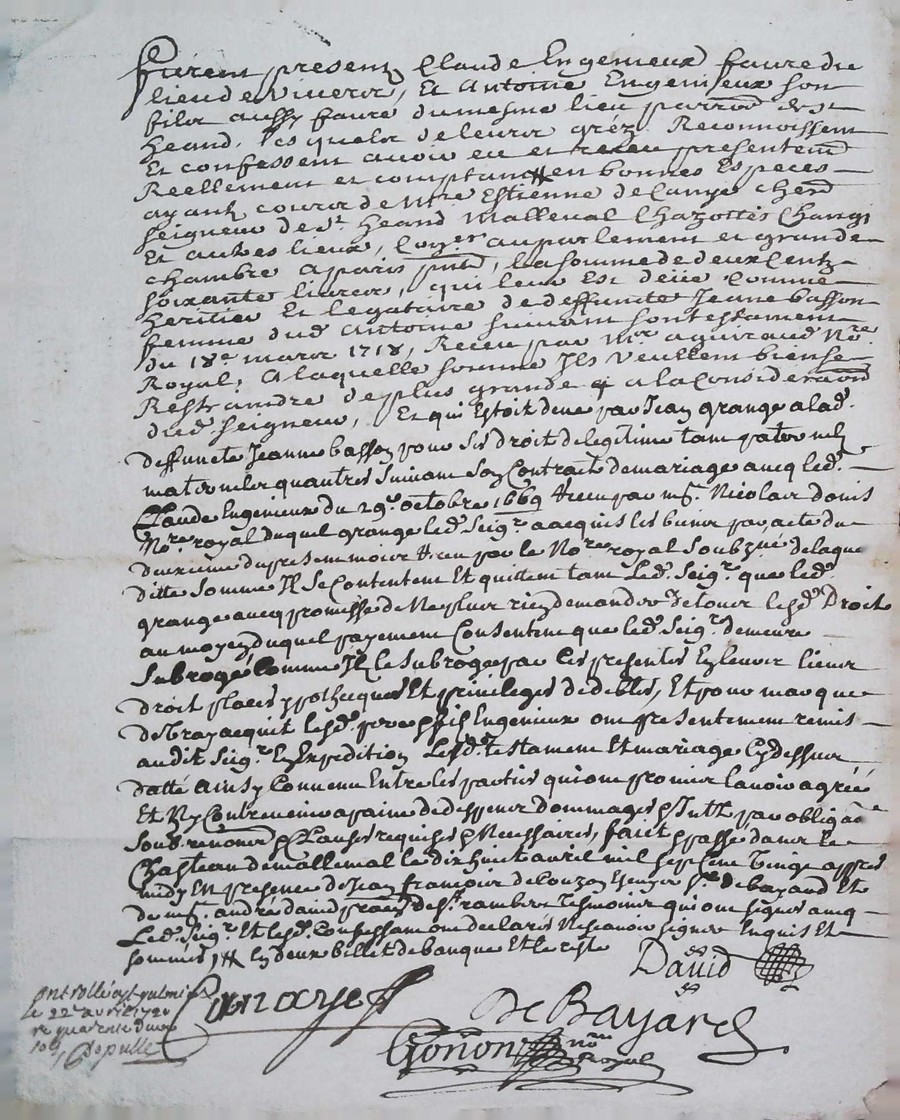 Furent presentz Claude Engenieux faure du
lieu de Viveror, Et Antoine Engenieux son
filz aussy faure du mesme lieu parroe de st
heand, lesquelz de leurs gréz Reconnoissent
Et confessent avoir eu et receu presentemt
Reellement et comptant # en bonnes Especes
ayantz cours de Mre Estienne de Conye cherd
seigneur de St. heand Malleval Chazottes Changi
Et autres lieux, Coner au parlement et grande
chambre a paris pnt, la somme de deux Centz
soixante livres, qui leur Est deüe Comme
heritier Et legataire de deffuncte Jeane basson
femme dud Antoine suivant son testament
du 18e mars 1718, Receu par Mr aguiraud Nre
Royal, A laquelle somme Ils Veullent bien se
Restraindre de plus grande a la Consideraon
dud seigneur, Et qui Estoit deue par Jean grange a lad.
deffuncte Jeanne basson pour ses droit de legitime tam paternelz
maternelz quautres suivant son Contrait de mariage avecq led.
Claude Engenieux du 29e octobre 1669 # receu par me. Nicolas donis
Nore royal duquel grange led. Seigr. a acquis les biens par acte du
deuxieme du present moier # receu par le Nore royal Soubzné de laque
ditte Somme Ils Se Contentent Et quittent tant Led. Seigr. que led.
grange avecq promesse de Ne plus rien demander de tous lesd. Droit
au moyen duquel payement Consentent que led. Seigr. demeure
Subrogé Comme Ils le Subroge par Ces presentes En leurs lieux
droit places ypothecques Et privileges dedebtes, Et pour marque
de vray acquit lesd. pere & filz Engenieux ont presentement remis
audit Seigr. En Expedition Lesd. testament Et mariage Cy dessus
datté Ainsy Convenu Entre les parties qui ont promis lavoir agreé
Et Ny Contrevenir a peine de despens dommages & Intt. par obligaon
Soub. renonons & Clauses requises & Neccessaires, faict & passé dans le
Chasteau de malleval le dix huict avril mil sept cent Vingt appres
midy En presence de Jean francois de Couzon Escuyer Sr. de bayard Et
de me. andré david praen de St. rambert tesmoins qui ont signés avecq
Led. Seigr. Et lesd. Confessant ont declarés Ne scavoir signer Enquis Et
sommés, # En deux billet de banque Et le reste
David
De Bayard
Gonon nore Royal
Controllé a St galmier
le 22e avril 1720
re quarente deux
sols